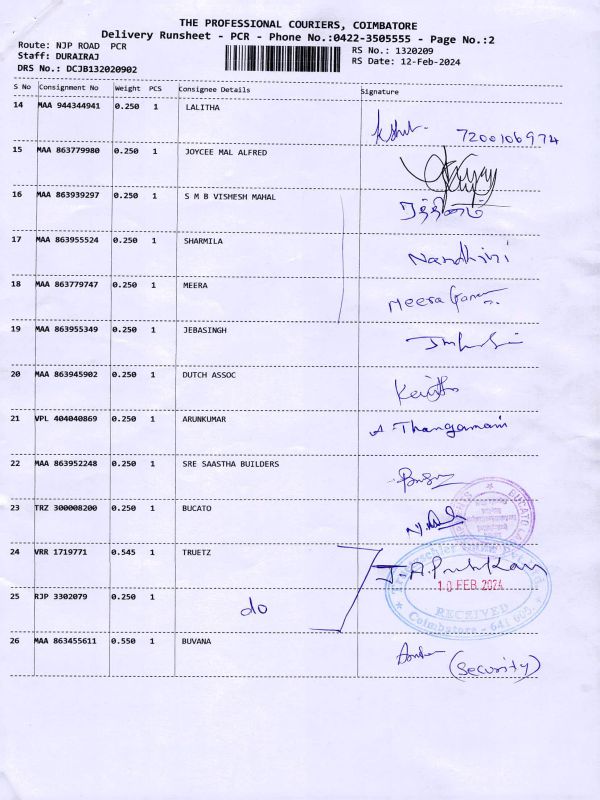 THE PROFESSIONAL COURIERS, COIMBATORE
Delivery Runsheet - PCR - Phone No.:0422-3505555 - Page No.:2
Route: NJP ROAD PCR
RS No.: 1320209
Staff: DURAIRAJ
RS Date: 12-Feb-2024
DRS No.: DCJB132020902
S No Consignment No Weight PCS Consignee Details Signature
14 MAA 944344941 0.250 1 LALITHA
7200106974
15 MAA 863779980 0.250 1 JOYCEE MAL ALFRED
16 MAA 863939297 0.250 1 S M B VISHESH MAHAL
17 MAA 863955524 0.250 1 SHARMILA
Nandhini
18 MAA 863779747 0.250 1 MEERA
Meera
19 MAA 863955349 0.250 1 JEBASINGH
20 MAA 863945902 0.250 1 DUTCH ASSOC
21 VPL 404040869 0.250 1 ARUNKUMAR
A. Thangamani
22 MAA 863952248 0.250 1 SRE SAASTHA BUILDERS
23 TRZ 300008200 0.250 1 BUCATO
BUCATO
24 VRR 1719771 0.545 1 TRUETZ
10 FEB 2024
25 RJP 3302079 0.250 1 do
RECEIVED
Coimbatore - 641 005.
26 MAA 863455611 0.550 1 BUVANA
(Security)